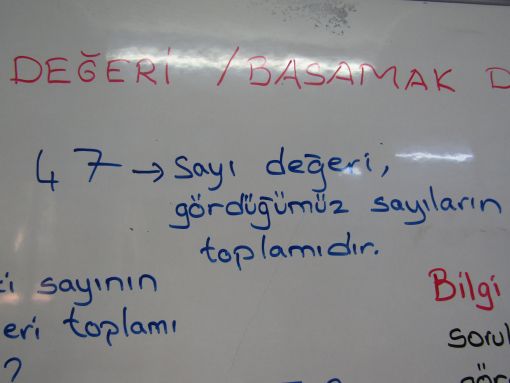 DEĞERİ / BASAMAK
47 → sayı değeri,
gördüğümüz sayıların
toplamıdır.
sayının
toplamı
?
Bilgi